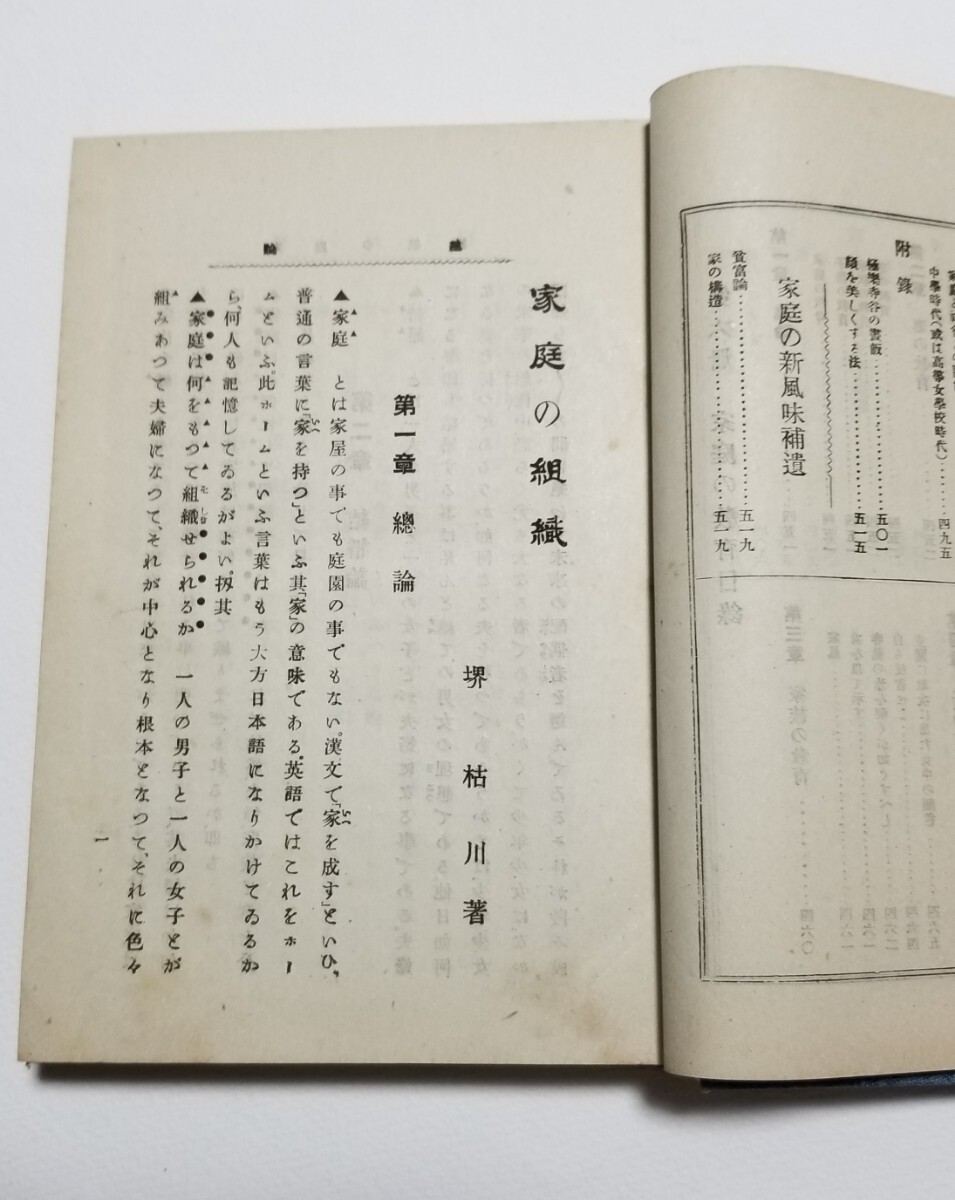 中學時代(或は高等女學校時代)………四九五
附錄
極樂寺谷の書飯…………五〇一
顏を美しくする法…………五一五
家庭の新風味補遺
貧富論…………五一九
家の構造…………五一九
總論
家庭の組織
堺枯川著
第一章 總論
▲家庭 とは家屋の事でも庭園の事でもない。漢文で「家を成す」といひ、
普通の言葉に「家を持つ」といふ其「家」の意味である。英語ではこれをホー
ムといふ。此ホームといふ言葉はもう大方日本語になりかけてゐるか
ら、何人も記憶してゐるがよい。扨其
▲家庭は何をもつて組織せられるか 一人の男子と一人の女子とが
組みあつて夫婦になつて、それが中心となり根本となつて、それに色々
一